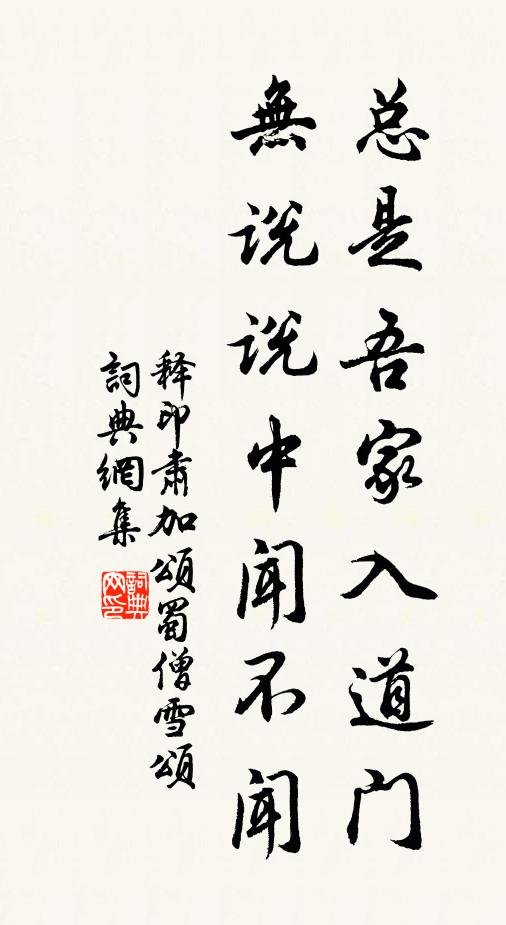 总是吾家入道门
無说说中闻不闻
释印肃加頌蜀僧雪頌
詞典網集
詞典网印